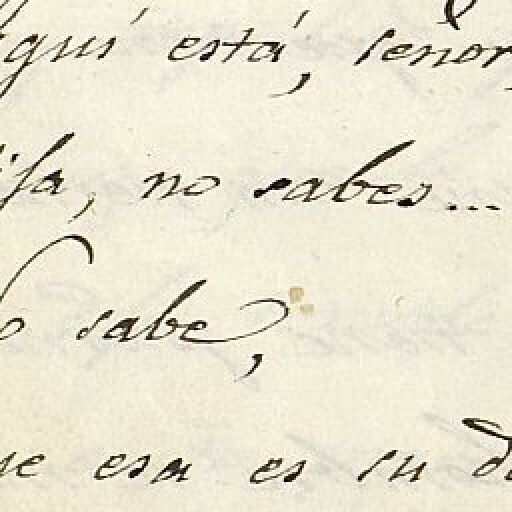 aquí está, señor,
isa, no sabes...
lo sabe,
que esa es su